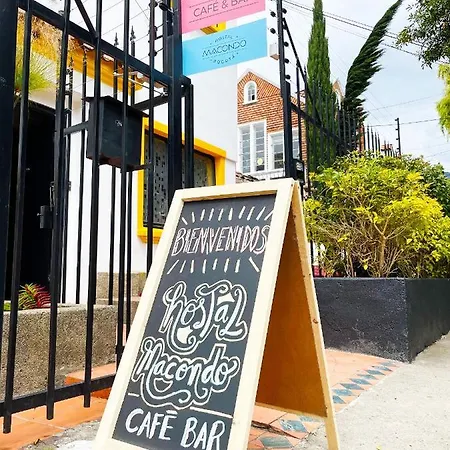 CAFÉ & BAR
HOSTAL
MACONDO
BOGOTÁ
BIENVENIDOS
HOSTAL
Macondo
CAFÉ BAR